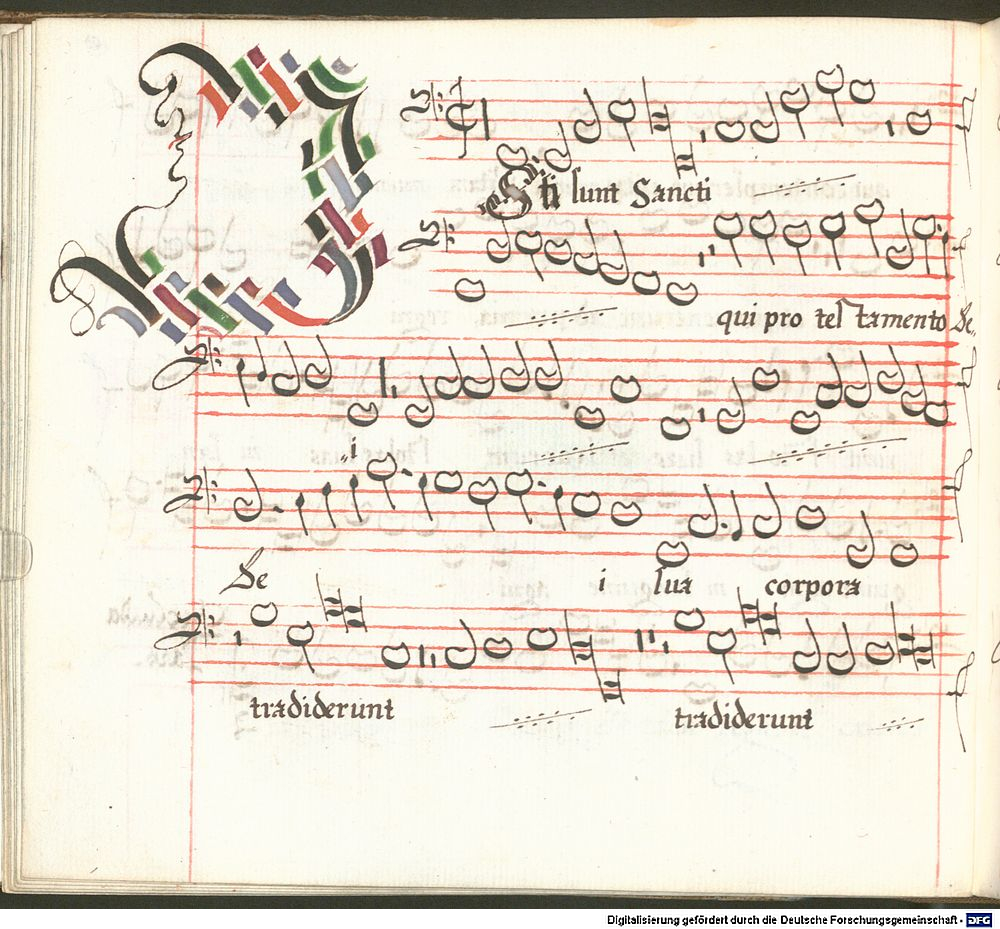 Isti sunt Sancti
qui pro testamento De,
i
De i sua corpora
tradiderunt tradiderunt
Digitalisierung gefördert durch die Deutsche Forschungsgemeinschaft - DFG